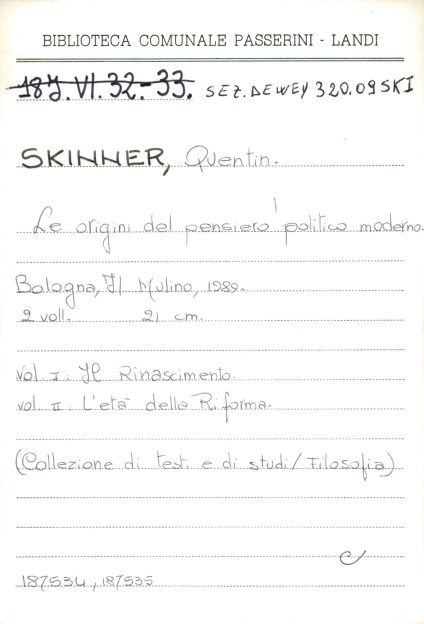 BIBLIOTECA COMUNALE PASSERINI - LANDI
18J.VI.32.-33. SEZ.DEWEY 320.09SKI
SKINNER, Quentin.
Le origini del pensiero politico moderno.
Bologna, Il Mulino, 1989.
2 voll. 21 cm.
Vol. I: Il Rinascimento.
vol. II: L'età della Riforma.
(Collezione di testi e di studi/Filosofia)
187534, 187535